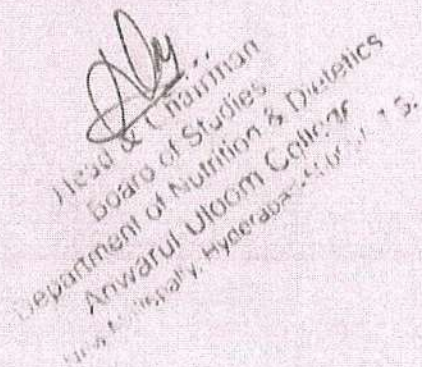 Head & Chairman
Board of Studies
Department of Nutrition & Dietetics
Anwarul Uloom College
New Mallepally, Hyderabad T.S.